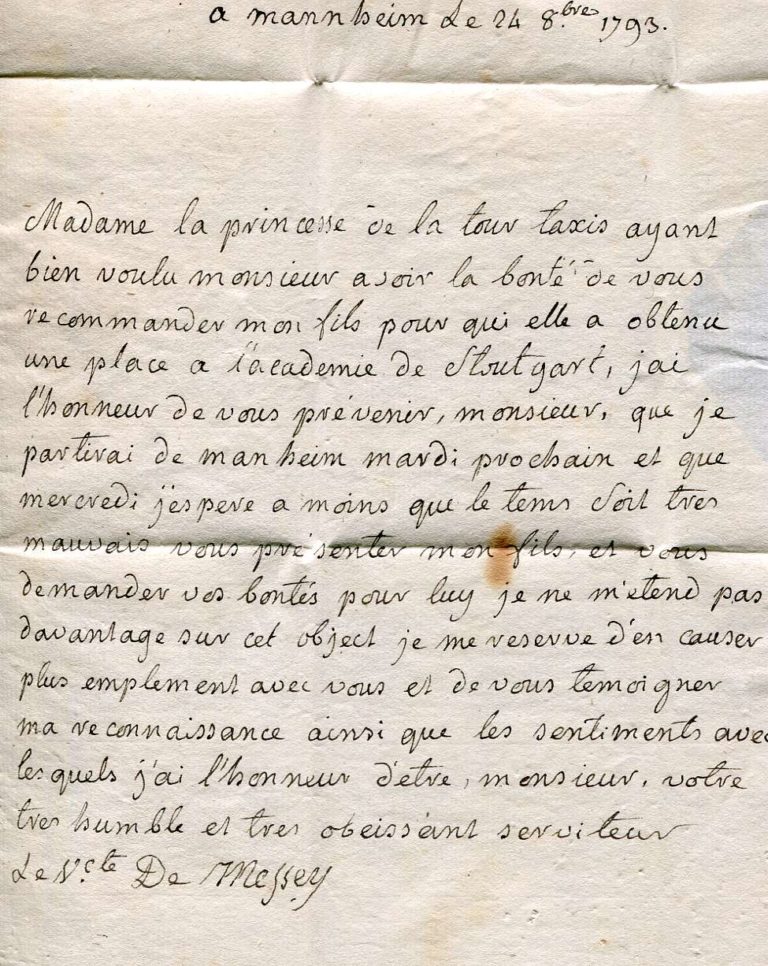 a mannheim Le 24 8.bres 1793.
Madame la princesse de la tour taxis ayant
bien voulu monsieur avoir la bonté de vous
recommander mon fils pour qui elle a obtenu
une place a l'academie de Stoutgart, jai
l'honneur de vous prévenir, monsieur, que je
partirai de manheim mardi prochain et que
mercredi j'espere a moins que le tems soit tres
mauvais vous présenter mon fils, et vous
demander vos bontés pour luy je ne m'etend pas
davantage sur cet object je me reserve d'en causer
plus emplement avec vous et de vous temoigner
ma reconnaissance ainsi que les sentiments avec
lesquels j'ai l'honneur d'etre, monsieur, votre
tres humble et tres obeissant serviteur
Le V.cte De Messey